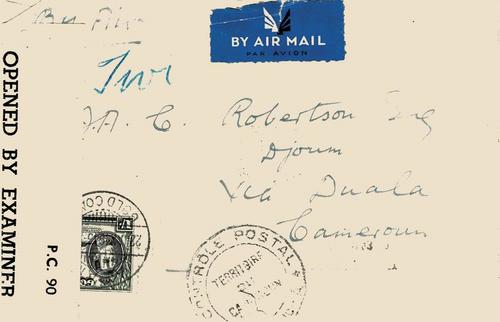 BY AIR MAIL
PAR AVION
OPENED BY EXAMINER
P.C. 90
J.A.C. Robertson Esq
Djoum
Via Duala
Cameroun
GOLD CO
CONTRÔLE POSTAL
TERRITOIRE
DU
CAMEROUN